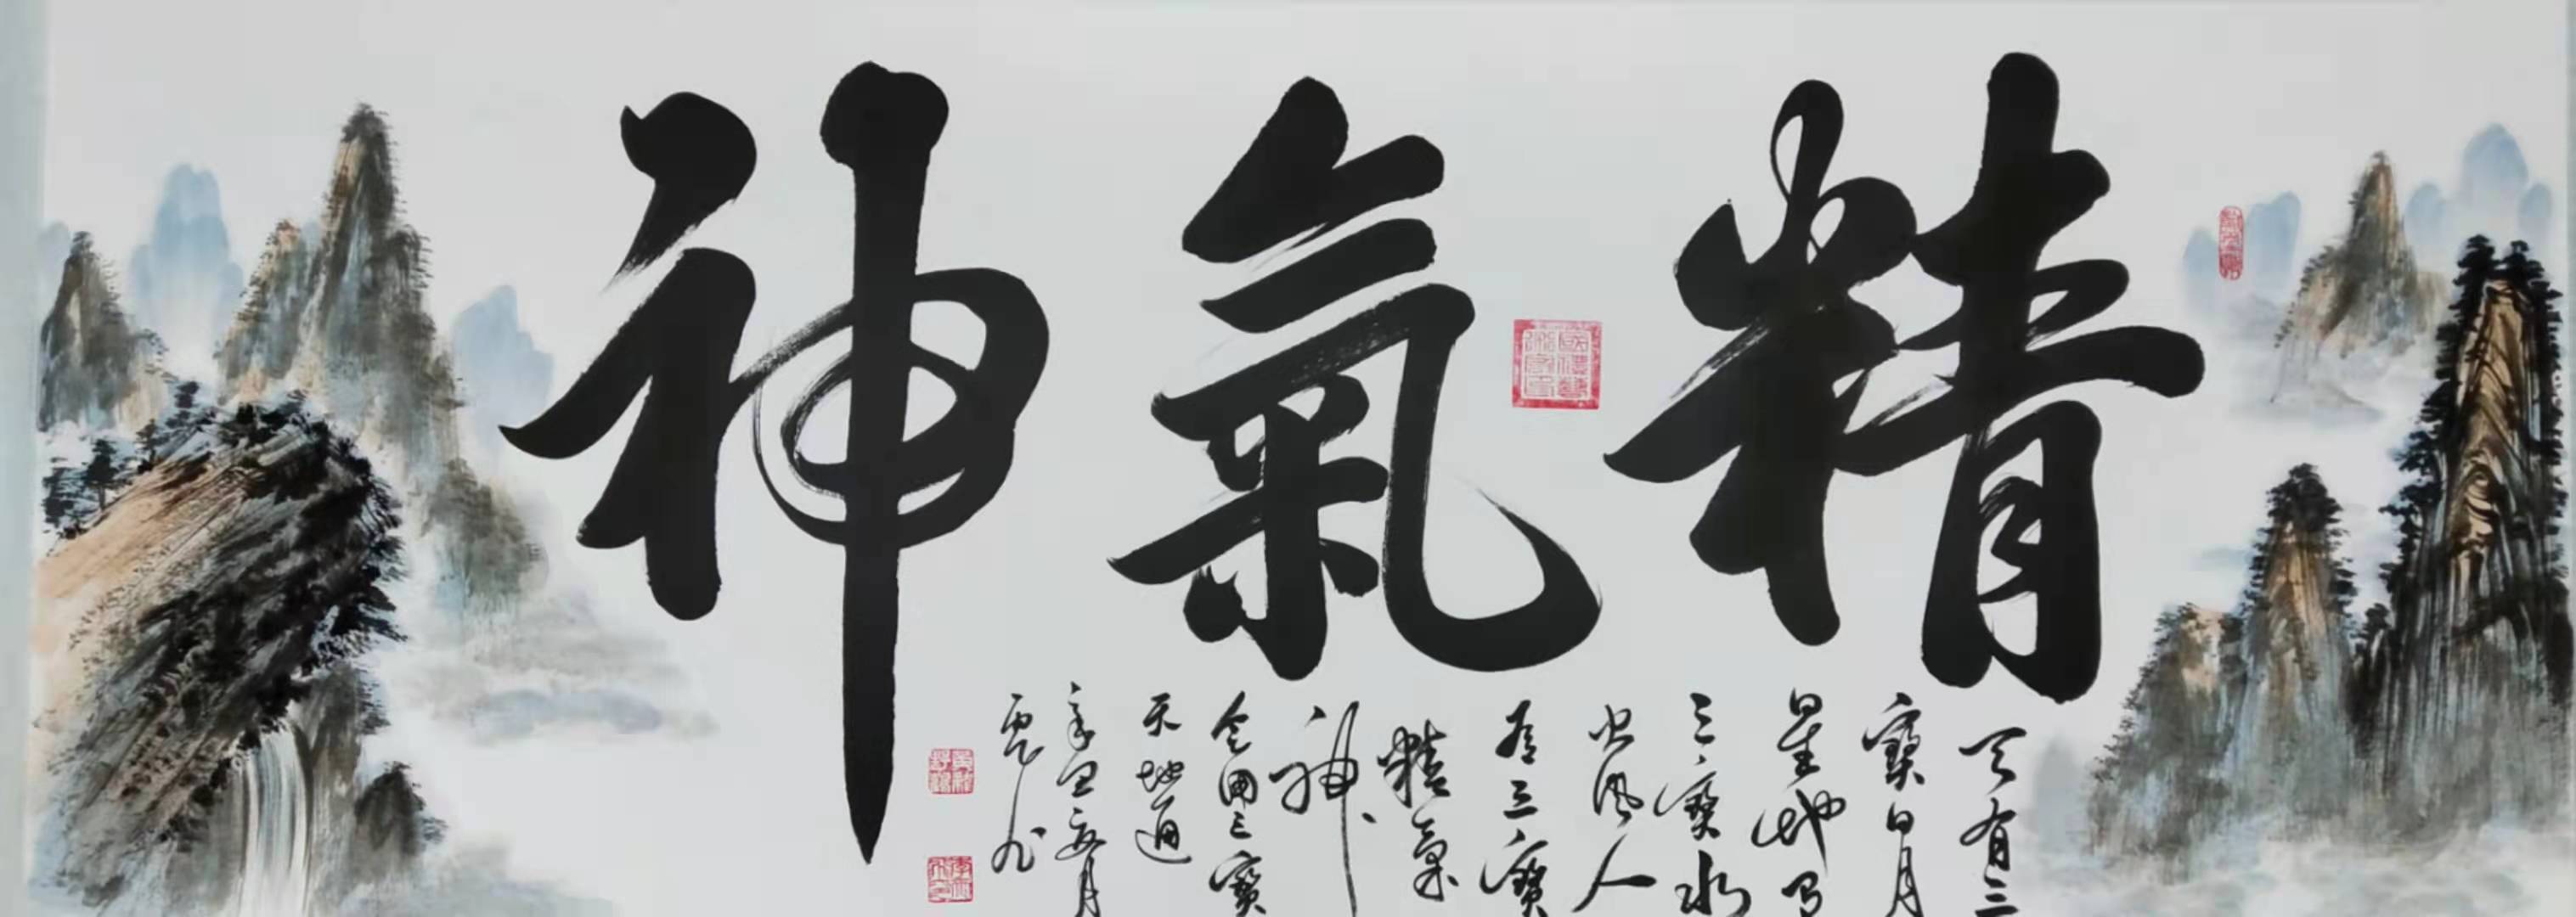 精氣神
天有三
寶日月
星地有
三寶水
火風人
有三寶
精氣
神
会用三寶
天地通
辛丑夏月